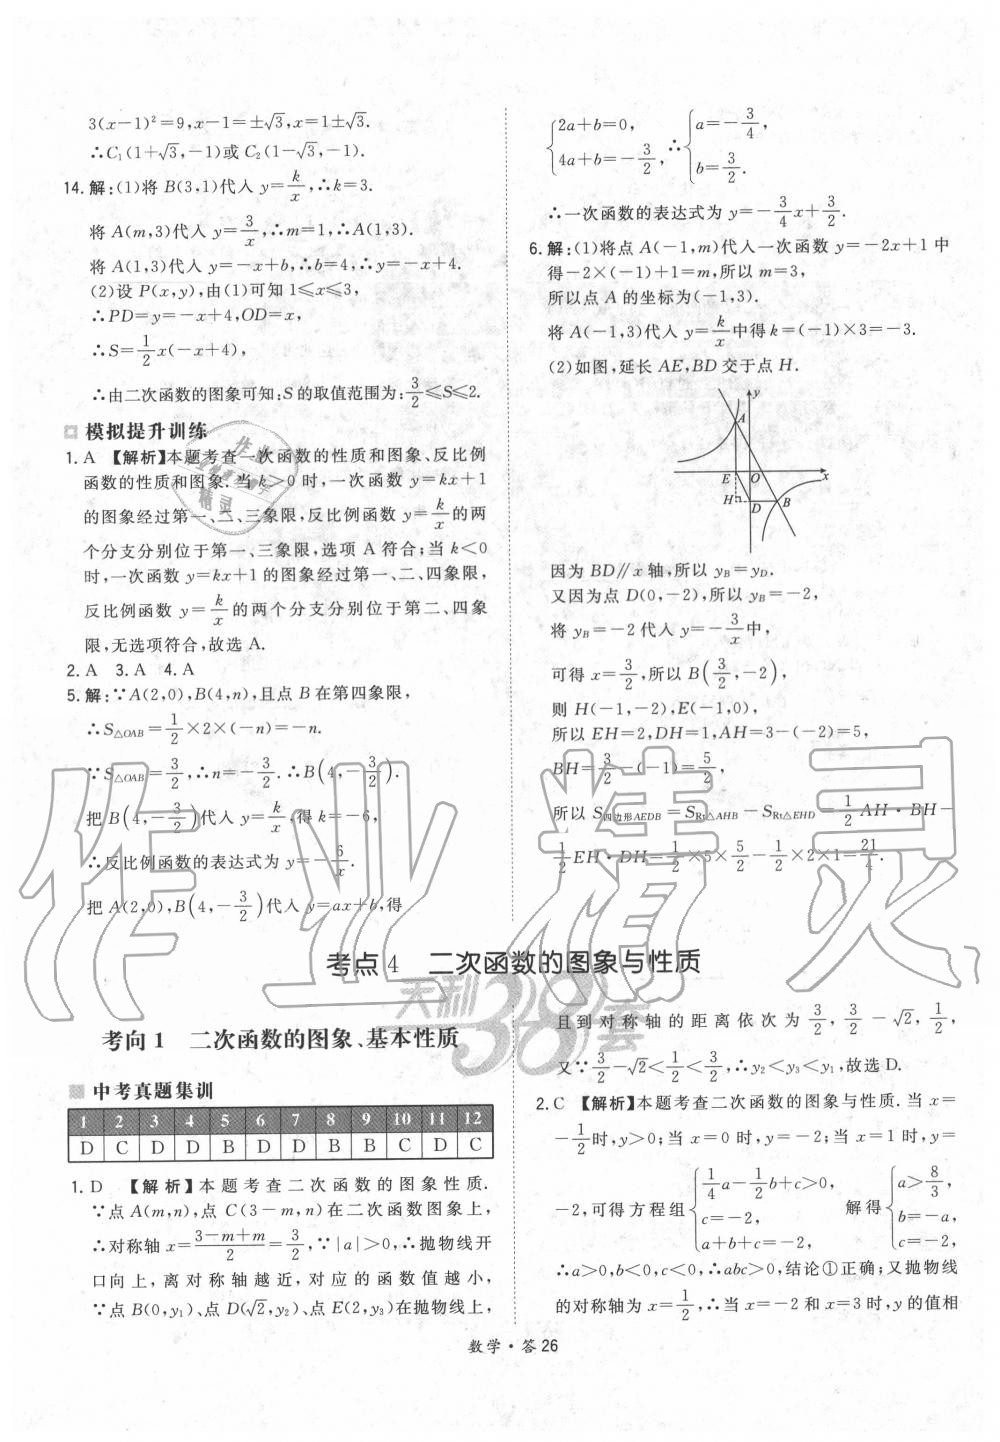 3(x-1)²=9,x-1=±√3,x=1±√3.
∴C₁(1+√3,-1)或 C₂(1-√3,-1).
14.解:(1)将 B(3,1)代入 y=k/x,∴k=3.
将 A(m,3)代入 y=3/x,∴m=1,∴A(1,3).
将 A(1,3)代入 y=-x+b,∴b=4,∴y=-x+4.
(2)设 P(x,y),由(1)可知 1≤x≤3,
∴PD=y=-x+4,OD=x,
∴S=1/2x(-x+4),
∴由二次函数的图象可知:S 的取值范围为:3/2≤S≤2.
模拟提升训练
1. A 【解析】本题考查一次函数的性质和图象、反比例
函数的性质和图象.当 k>0 时,一次函数 y=kx+1
的图象经过第一、二、三象限,反比例函数 y=k/x的两
个分支分别位于第一、三象限,选项 A 符合;当 k<0
时,一次函数 y=kx+1 的图象经过第一、二、四象限,
反比例函数 y=k/x的两个分支分别位于第二、四象
限,无选项符合,故选 A.
2. A 3. A 4. A
5.解:∵A(2,0),B(4,n),且点 B 在第四象限,
∴S△OAB=1/2×2×(-n)=-n.
∵S△OAB=3/2,∴n=-3/2.∴B(4,-3/2).
把 B(4,-3/2)代入 y=k/x,得 k=-6,
∴反比例函数的表达式为 y=-6/x.
把 A(2,0),B(4,-3/2)代入 y=ax+b,得
{2a+b=0, 4a+b=-3/2, ∴{a=-3/4, b=3/2.
∴一次函数的表达式为 y=-3/4x+3/2.
6.解:(1)将点 A(-1,m)代入一次函数 y=-2x+1 中
得-2×(-1)+1=m,所以 m=3,
所以点 A 的坐标为(-1,3).
将 A(-1,3)代入 y=k/x中得 k=(-1)×3=-3.
(2)如图,延长 AE,BD 交于点 H.
y
A
E O x
H D B
因为 BD∥x 轴,所以 y_B=y_D.
又因为点 D(0,-2),所以 y_B=-2,
将 y_B=-2 代入 y=-3/x中,
可得 x=3/2,所以 B(3/2,-2),
则 H(-1,-2),E(-1,0),
所以 EH=2,DH=1,AH=3-(-2)=5,
BH=3/2-(-1)=5/2,
所以 S四边形AEDB=S_Rt△AHB-S_Rt△EHD=1/2AH·BH-
1/2EH·DH=1/2×5×5/2-1/2×2×1=21/4.
考点 4 二次函数的图象与性质
考向 1 二次函数的图象、基本性质
中考真题集训
1 2 3 4 5 6 7 8 9 10 11 12
D C D D B D D B B C D C
1. D 【解析】本题考查二次函数的图象性质.
∵点 A(m,n),点 C(3-m,n)在二次函数图象上,
∴对称轴 x=(3-m+m)/2=3/2,∵|a|>0,∴抛物线开
口向上,离对称轴越近,对应的函数值越小,
∵点 B(0,y₁)、点 D(√2,y₂)、点 E(2,y₃)在抛物线上,
且到对称轴的距离依次为 3/2,3/2-√2,1/2,
又∵3/2-√2<1/2<3/2,∴y₂<y₃<y₁,故选 D.
2. C 【解析】本题考查二次函数的图象与性质.当 x=
-1/2时,y>0;当 x=0 时,y=-2;当 x=1 时,y=
-2,可得方程组{1/4a-1/2b+c>0, c=-2, a+b+c=-2, 解得{a>8/3, b=-a, c=-2,
∴a>0,b<0,c<0,∴abc>0,结论①正确;又抛物线
的对称轴为 x=1/2,∴当 x=-2 和 x=3 时,y 的值相
数学·答 26
作业精灵
天利38套
作业
精灵